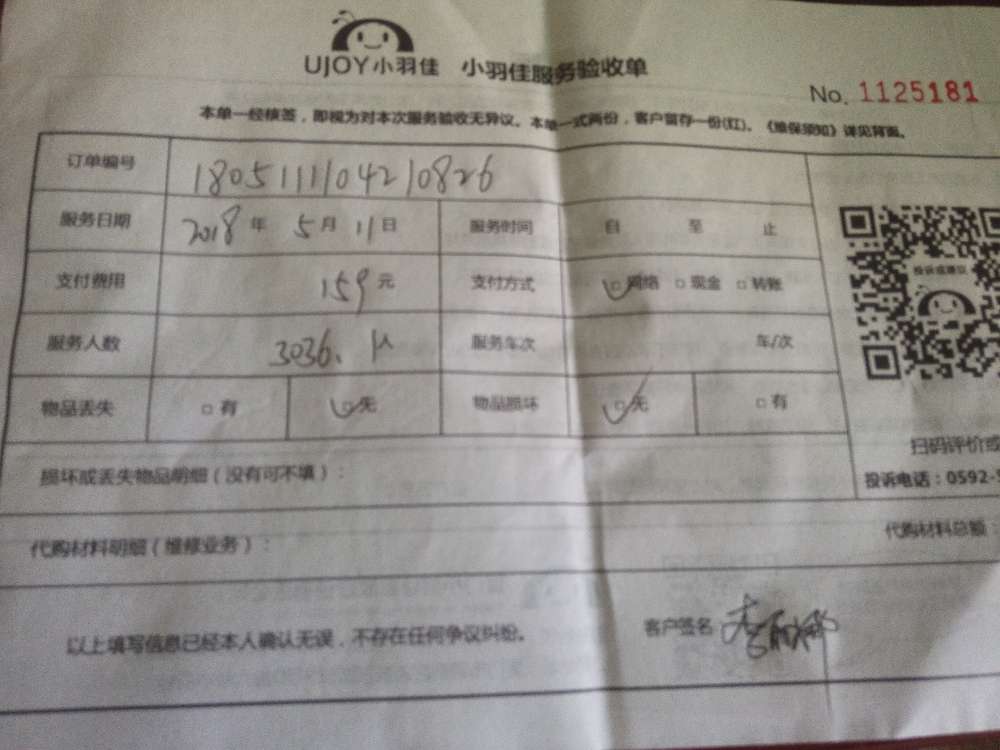 UJOY小羽佳 小羽佳服务验收单
No. 1125181
本单一经核签，即视为对本次服务验收无异议。本单一式两份，客户留存一份(红)。《维保须知》详见背面。
订单编号 1805111104210826
服务日期 2018年 5月 11日 服务时间 自 至 止
支付费用 159元 支付方式 □网络 □现金 □转账
投诉或建议
服务人数 3036. 1人 服务车次 车/次
物品丢失 □有 □无 物品损坏 □无 □有
扫码评价或
损坏或丢失物品明细（没有可不填）：
投诉电话：0592-5
代购材料明细（维修业务）：
代购材料总额：
以上填写信息已经本人确认无误，不存在任何争议纠纷。 客户签名